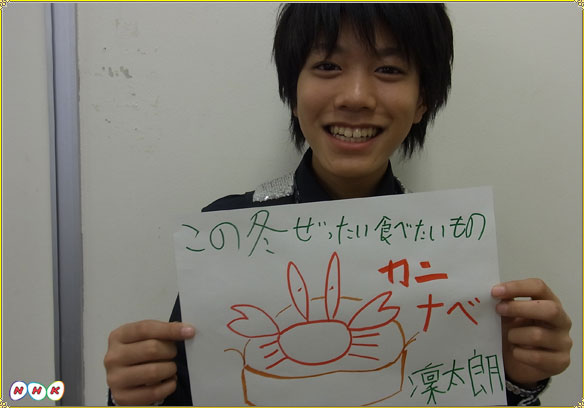 この冬ぜったい食べたいもの
カニ
ナベ
凜太朗
NHK